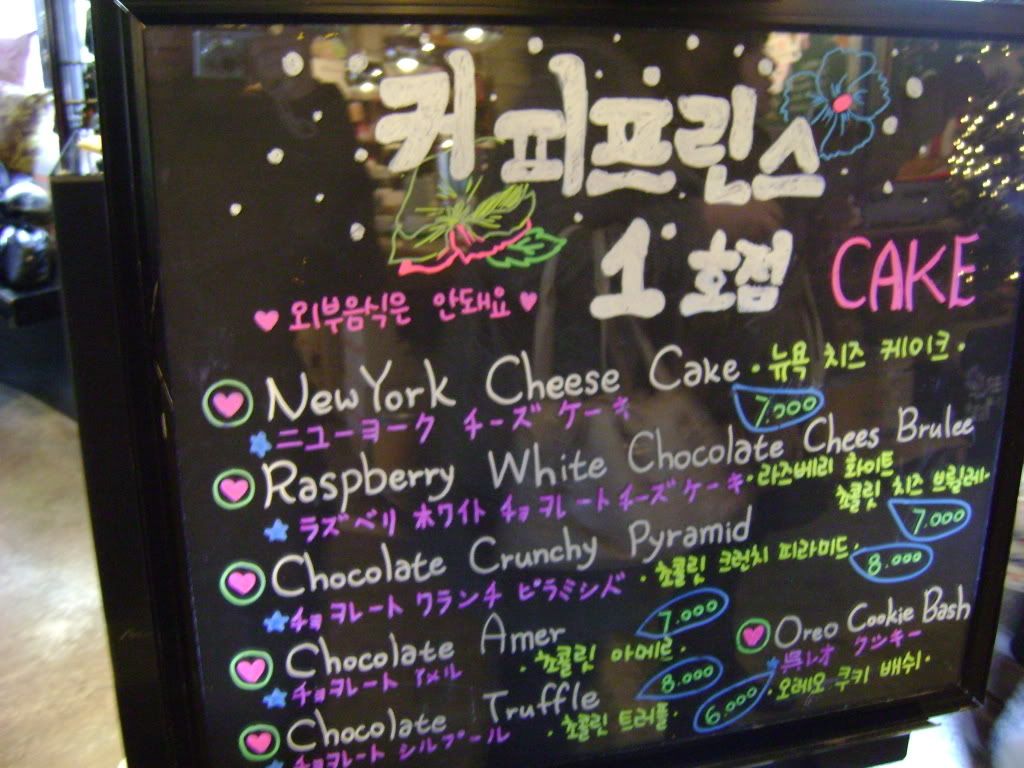 커피프린스
1호점 CAKE
외부음식은 안돼요
New York Cheese Cake · 뉴욕 치즈 케이크 ·
ニューヨーク チーズ ケーキ 7.000
Raspberry White Chocolate Chees Brulee
ラズベリ ホワイト チョコレート チーズ ケーキ · 라즈베리 화이트
초콜릿 치즈 브륄레 ·
7.000
Chocolate Crunchy Pyramid
チョコレート クランチ · 초콜릿 크런치 피라미드 · 8.000
Chocolate Amer 7.000
チョコレート アメル · 초콜릿 아메르 ·
Oreo Cookie Bash
クッキー
· 오레오 쿠키 배쉬 ·
Chocolate Truffle 8.000
チョコレート · 초콜릿 트러플 · 6.000